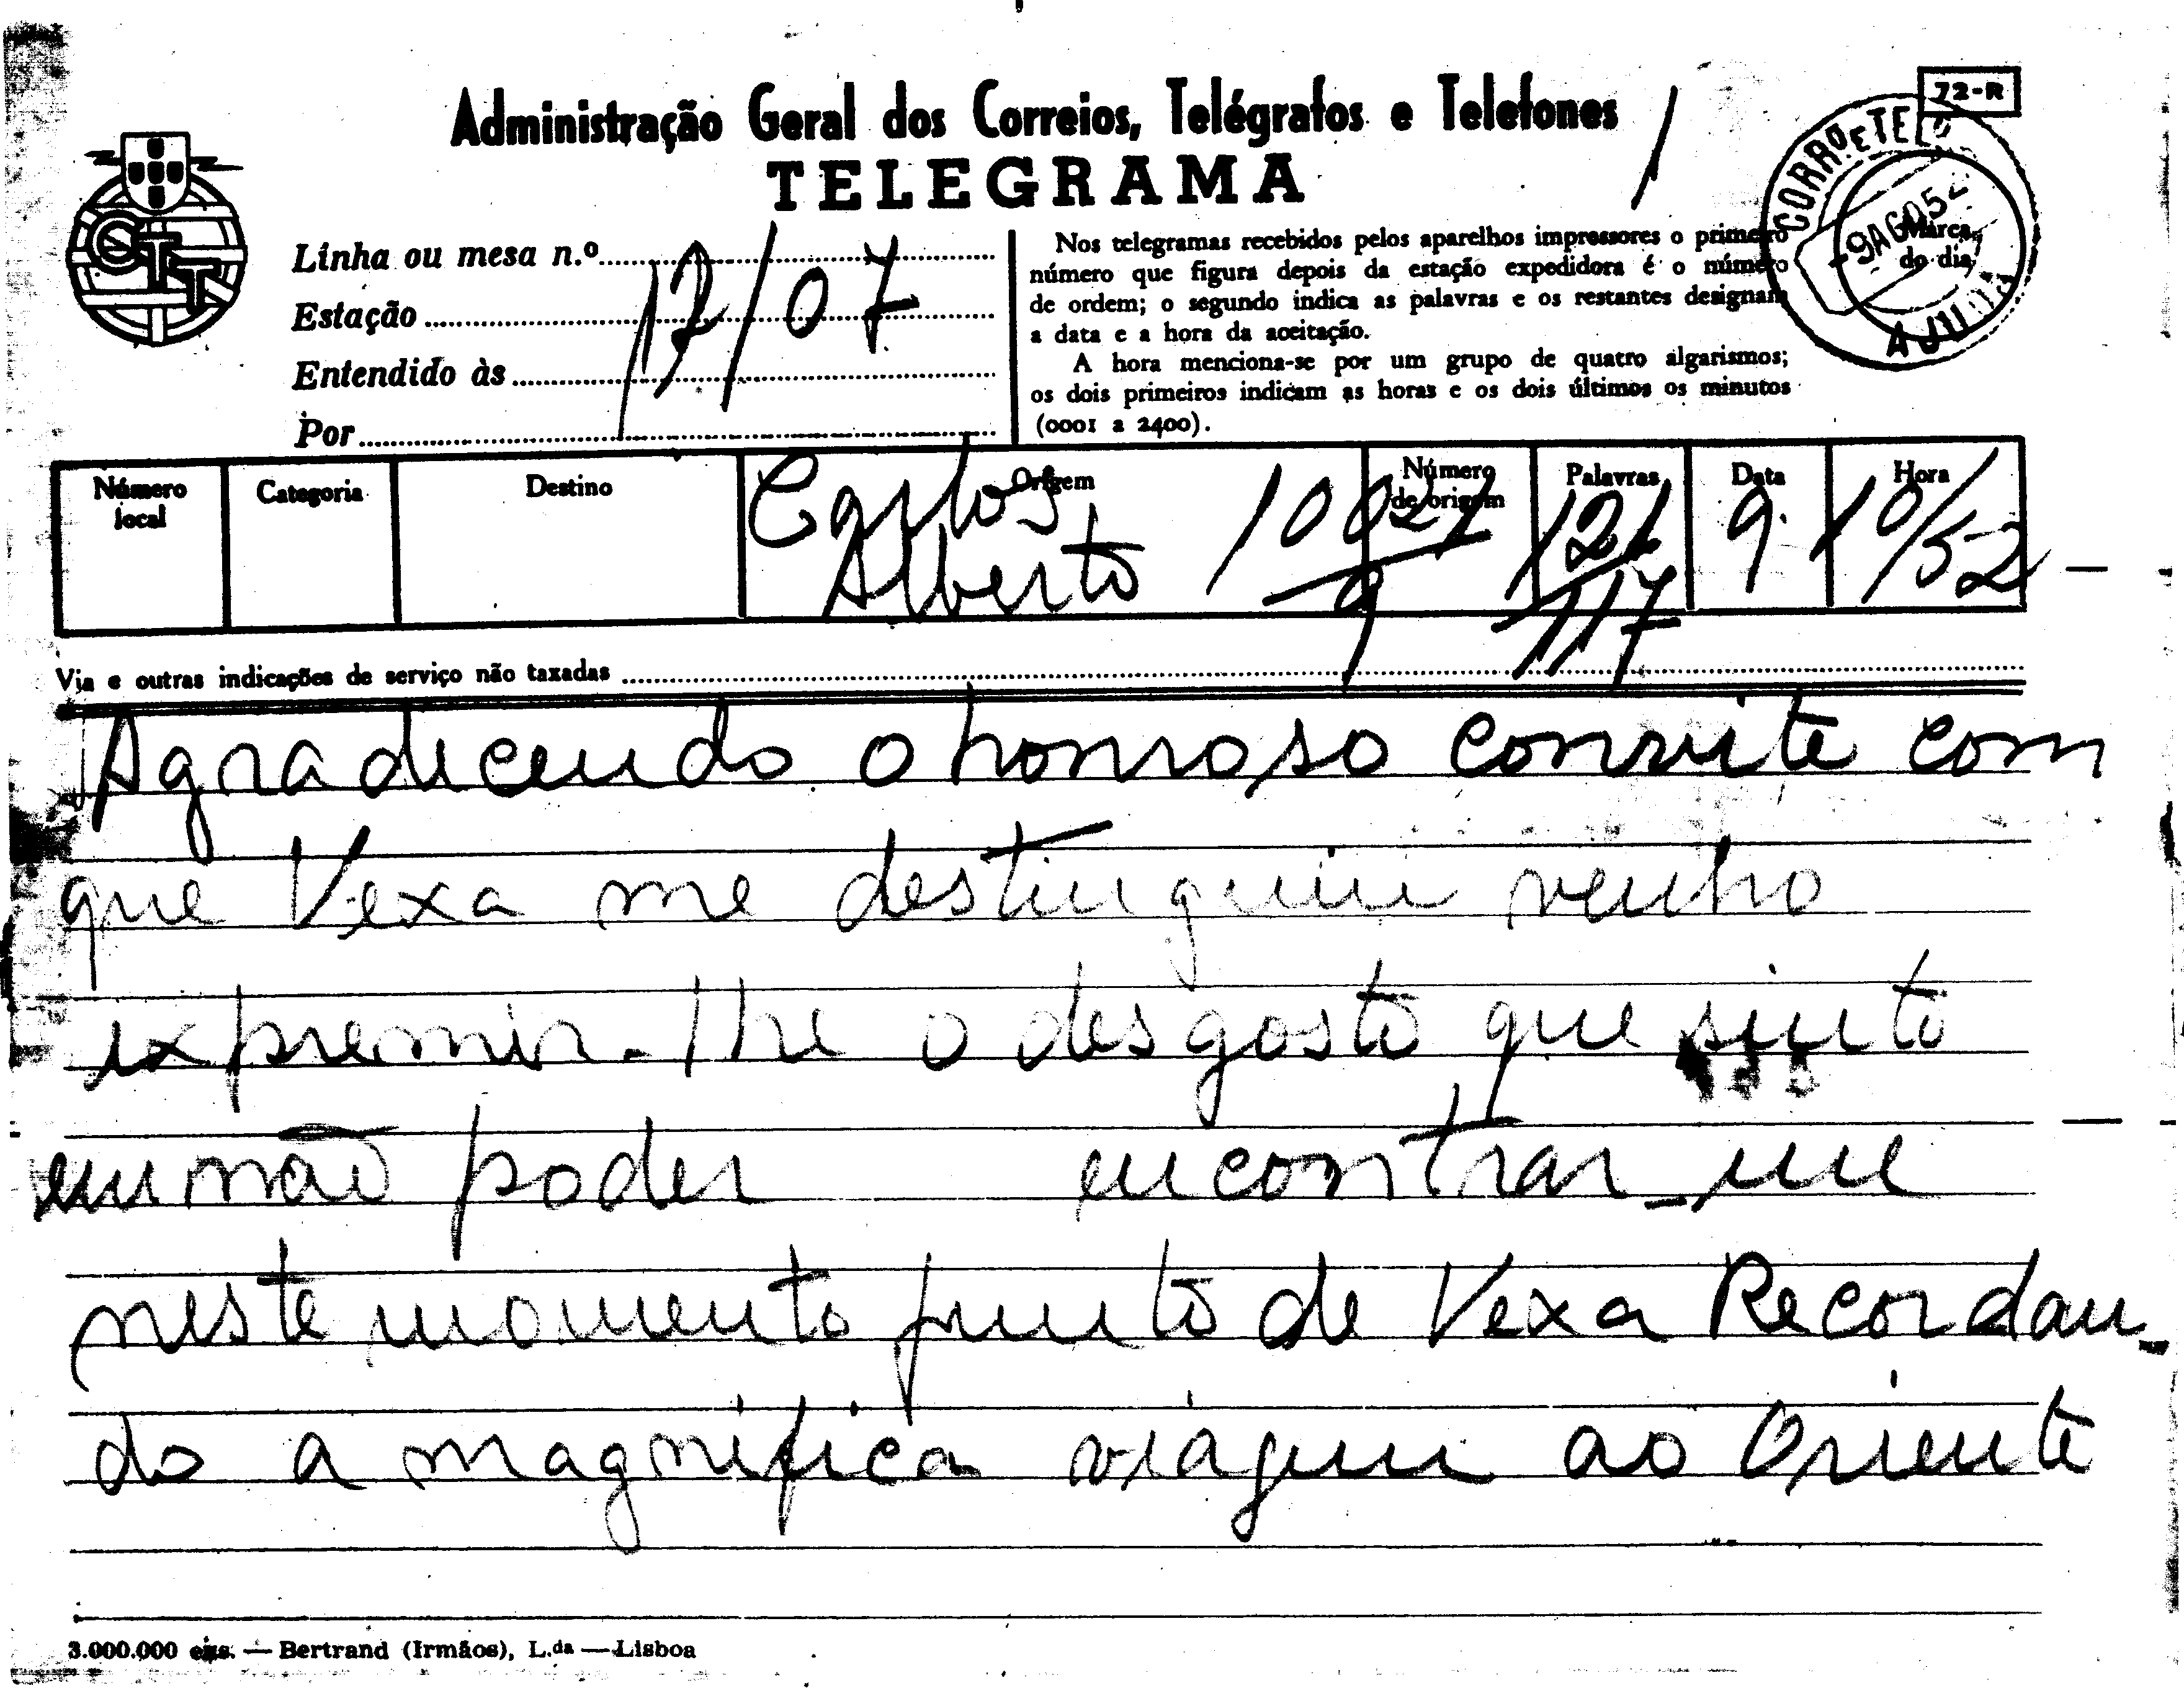 72-R
Administração Geral dos Correios, Telégrafos e Telefones
TELEGRAMA
CORRº E TELº
9 AGO 52
AJUDA
Marca
do dia
CTT
Linha ou mesa n.º
Estação
Entendido às
Por
12/07
Nos telegramas recebidos pelos aparelhos impressores o primeiro
número que figura depois da estação expedidora é o número
de ordem; o segundo indica as palavras e os restantes designam
a data e a hora da aceitação.
A hora menciona-se por um grupo de quatro algarismos;
os dois primeiros indicam as horas e os dois últimos os minutos
(0001 a 2400).
Número local
Categoria
Destino
Origem
Número de origem
Palavras
Data
Hora
Carlos
Alberto
10021/9
121/117
9
10/52
Via e outras indicações de serviço não taxadas
Agradecendo o honroso convite com
que Vexa me destinguiu venho
expremir-lhe o desgosto que sinto
em não poder encontrar-me
neste momento junto de Vexa Recordan-
do a magnifica viagem ao Oriente
3.000.000 exs. — Bertrand (Irmãos), L.da — Lisboa